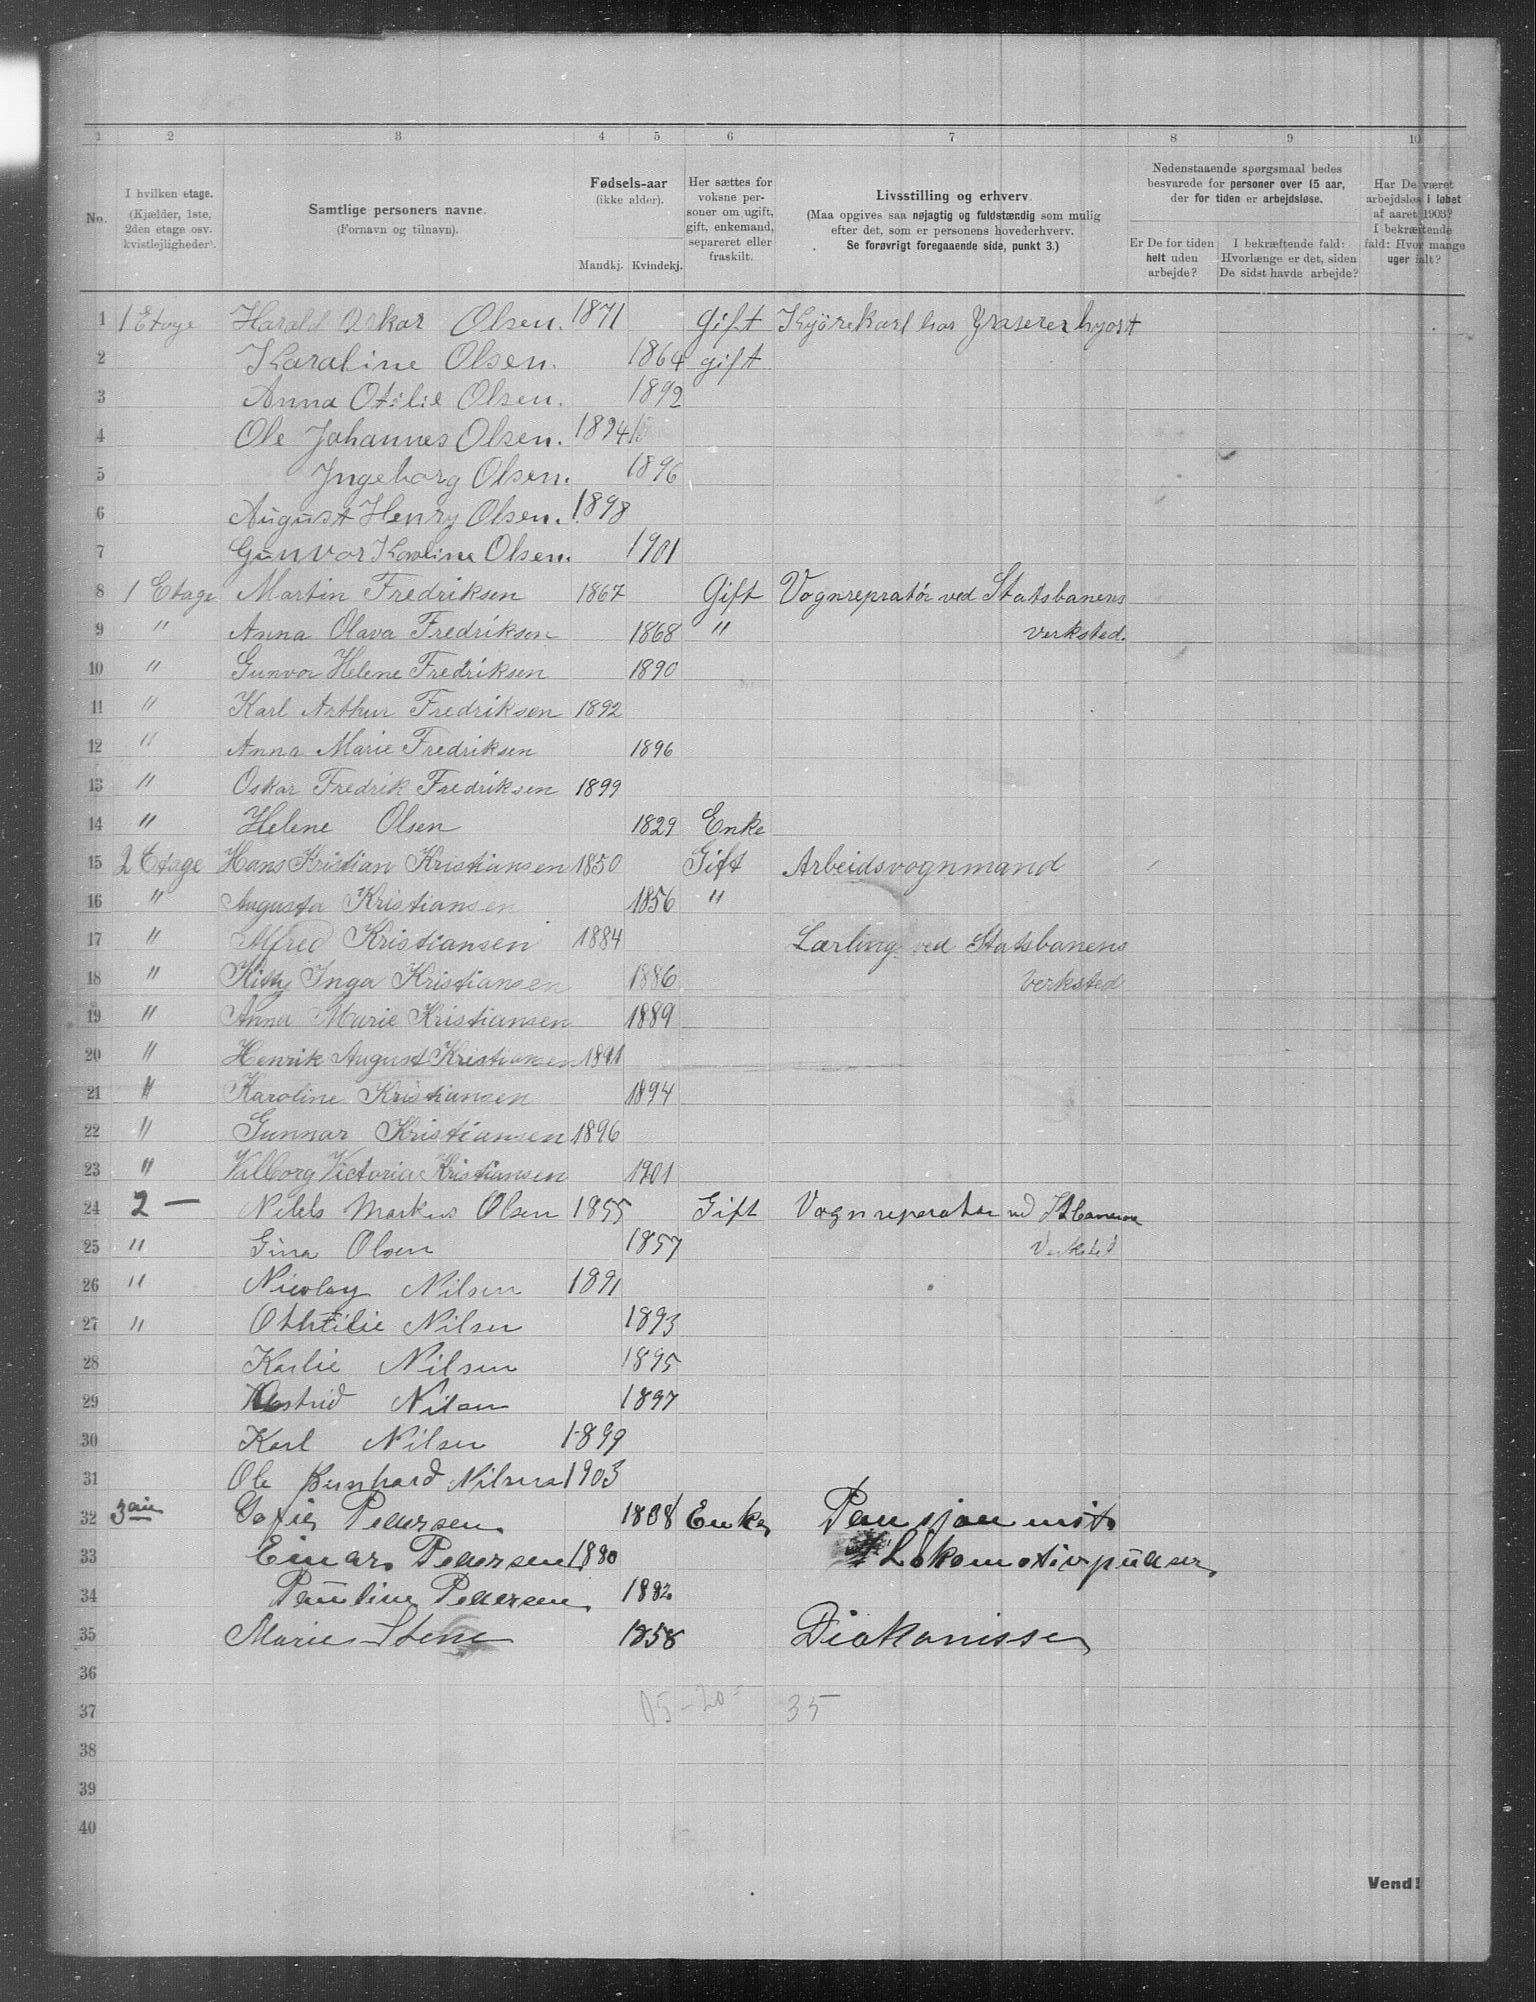 1 2 3 4 5 6 7 8 9 10
No.
I hvilken etage.
(Kjælder, 1ste,
2den etage osv.
kvistlejligheder).
Samtlige personers navne.
(Fornavn og tilnavn).
Fødsels-aar
(ikke alder).
Mandkj. Kvindekj.
Her sættes for
voksne per-
soner om ugift,
gift, enkemand,
separeret eller
fraskilt.
Livsstilling og erhverv.
(Maa opgives saa nøjagtig og fuldstændig som mulig
efter det, som er personens hovederhverv.
Se forøvrigt foregaaende side, punkt 3.)
Nedenstaaende spørgsmaal bedes
besvarede for personer over 15 aar,
der for tiden er arbejdsløse.
Er De for tiden
helt uden
arbejde?
I bekræftende fald:
Hvorlænge er det, siden
De sidst havde arbejde?
Har De været
arbejdsløs i løbet
af aaret 1903?
I bekræftende
fald: Hvor mange
uger ialt?
1 1 Etage Harald Oskar Olsen. 1871 Gift Kjörekarl hos
2 Karaline Olsen. 1864 gift
3 Anna Otilie Olsen. 1892
4 Ole Johannes Olsen. 1894
5 Ingeborg Olsen. 1896
6 August Henry Olsen. 1898
7 Gunvor Karoline Olsen. 1901
8 1 Etage Martin Fredriksen 1867 Gift Vognrepratør ved Statsbanens
9 " Anna Olava Fredriksen 1868 " verksted.
10 " Gunvor Helene Fredriksen 1890
11 " Karl Arthur Fredriksen 1892
12 " Anna Marie Fredriksen 1896
13 " Oskar Fredrik Fredriksen 1899
14 " Helene Olsen 1829 Enke
15 2 Etage Hans Kristian Kristiansen 1850 Gift Arbeidsvognmand
16 " Augusta Kristiansen 1856 "
17 " Alfred Kristiansen 1884 Lærling ved Statsbanens
18 " Kitty Inga Kristiansen 1886 verksted
19 " Anna Marie Kristiansen 1889
20 " Henrik August Kristiansen 1891
21 " Karoline Kristiansen 1894
22 " Gunnar Kristiansen 1896
23 " Valborg Victoria Kristiansen 1901
24 2 — Nikls Markus Olsen 1855 Gift Vognreperatør ved
25 " Gina Olsen 1857
26 " Nicolay Nilsen 1891
27 " Othtilie Nilsen 1893
28 Karlie Nilsen 1895
29 Astrid Nilsen 1897
30 Karl Nilsen 1899
31 Ole Bernhard Nilsen 1903
32 3die Sofie Pedersen 1838 Enke Pensjonnist
33 Einar Pedersen 1880 Lokomotivpudser
34 Pauline Pedersen 1882
35 Marie Stene 1858 Diakonisse
36
37 15-20- 35
38
39
40
Vend!